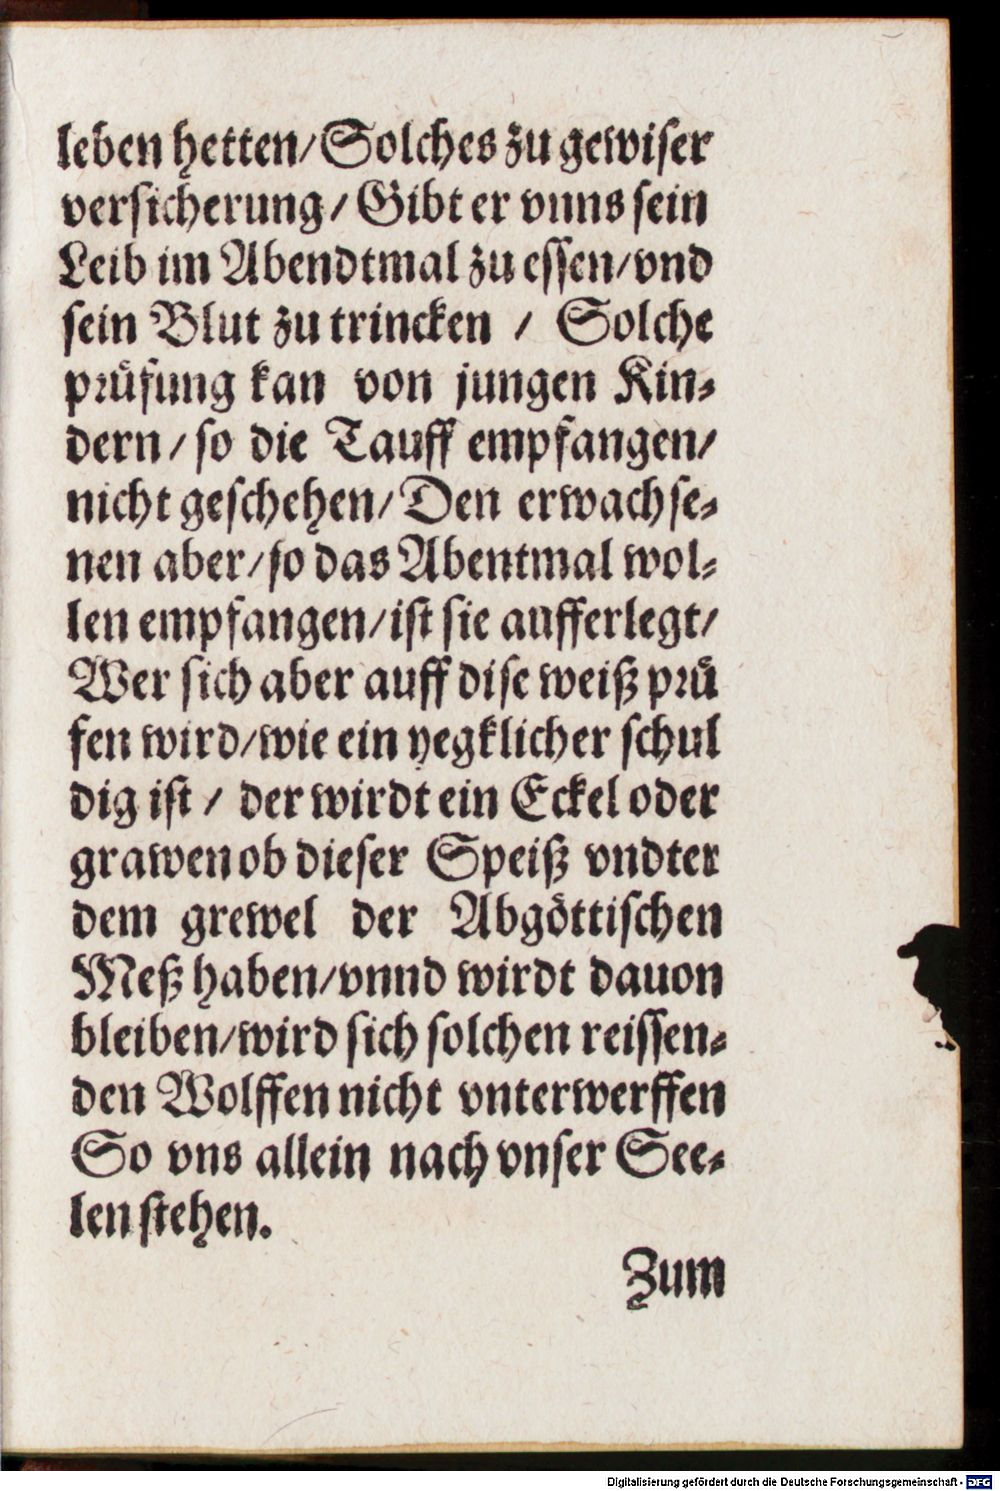 leben hetten/Solches zu gewiser
versicherung/Gibt er vnns sein
Leib im Abendtmal zu essen/vnd
sein Blut zu trincken / Solche
prüfung kan von jungen Kin⸗
dern/so die Tauff empfangen/
nicht geschehen/Den erwachse⸗
nen aber/so das Abentmal wol⸗
len empfangen/ist sie aufferlegt/
Wer sich aber auff dise weiß prü
fen wird/wie ein yegklicher schul
dig ist / der wirdt ein Eckel oder
grawen ob dieser Speiß vndter
dem grewel der Abgöttischen
Meß haben/vnnd wirdt dauon
bleiben/wird sich solchen reissen⸗
den Wolffen nicht vnterwerffen
So vns allein nach vnser See⸗
len stehen.
Zum
Digitalisierung gefördert durch die Deutsche Forschungsgemeinschaft - DFG